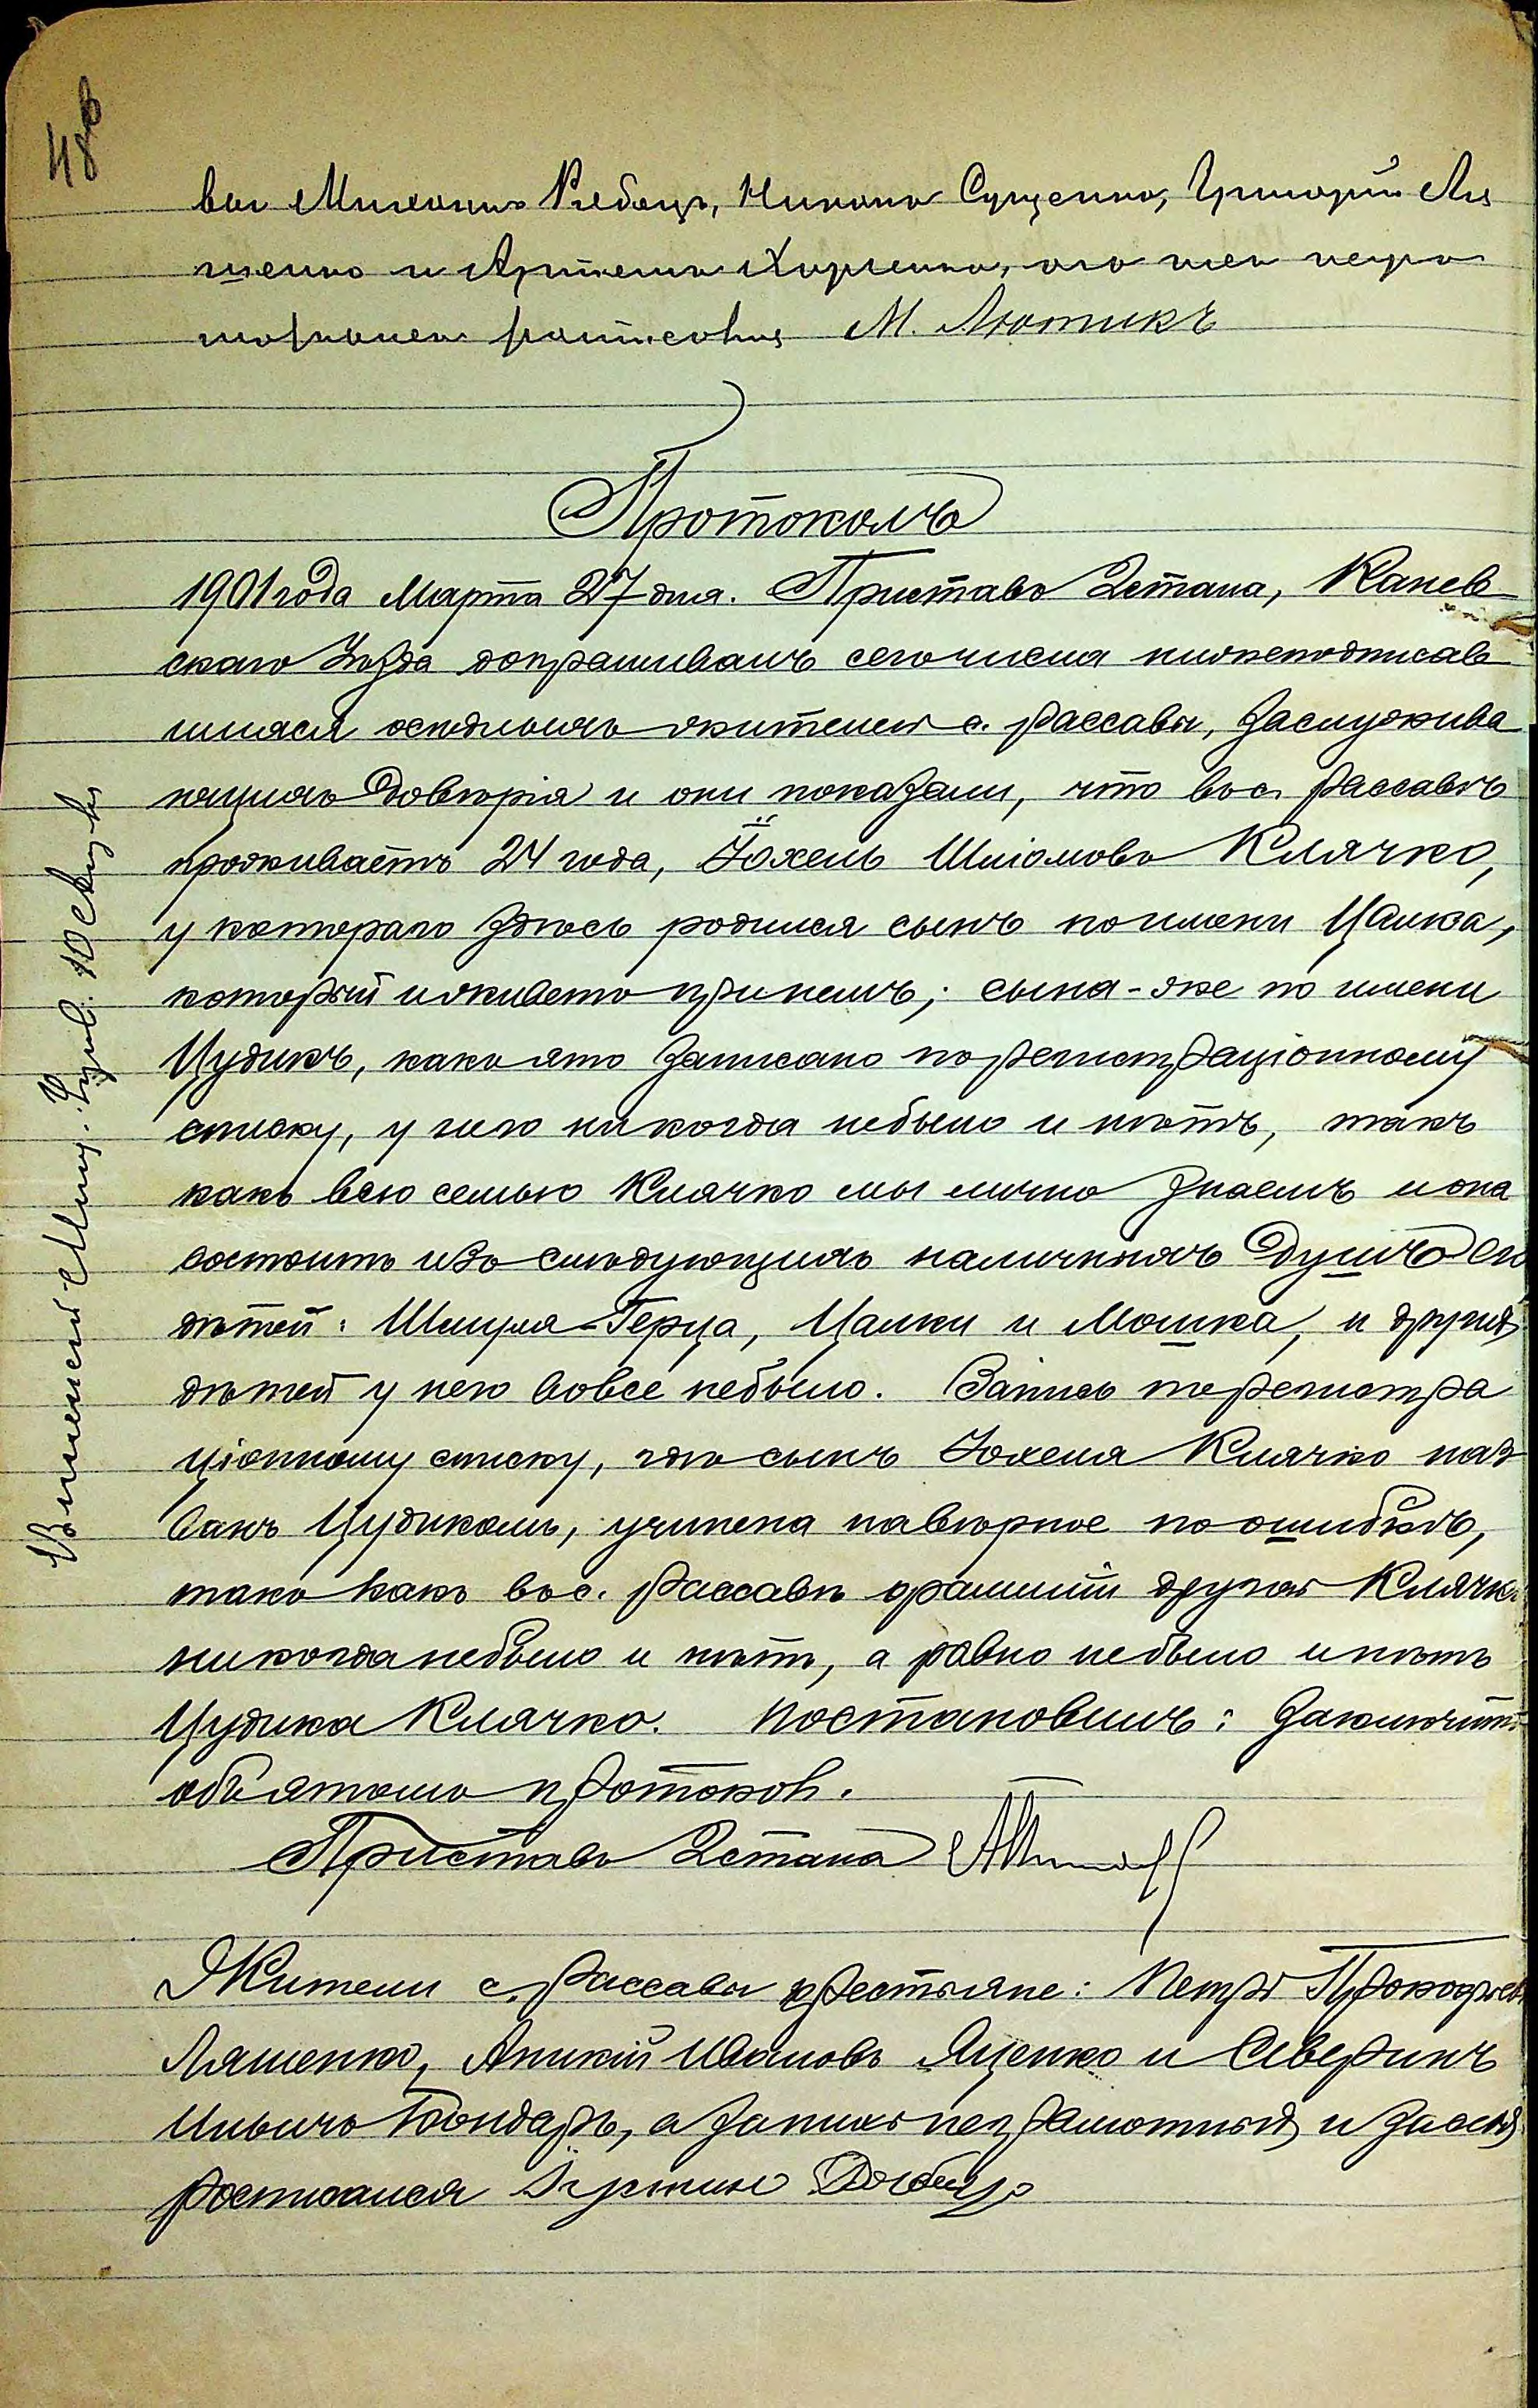 48
вы Михаилъ Рябецъ, Никонъ Сущенко, Григорій Ля
щенко и Артемъ Харченко, а за нихъ негра
мотныхъ росписався М. Лютикъ
Протоколъ
1901 года Марта 27 дня. Приставъ 2 стана, Канев
скаго Уѣзда допрашивалъ сего числа нижеподписав
шихся осѣдлыхъ жителей с. Рассавы, заслужива
ющихъ довѣрія и они показали, что въ с. Рассавѣ
проживаетъ 24 года, Іохель Шліомовъ Клячко,
у котораго здѣсь родился сынъ по имени Цалка,
который и живетъ при немъ; сына-же по имени
Цудикъ, какъ ято записано по регистраціонному
списку, у него никогда небыло и нѣтъ, такъ
какъ всю семью Клячко мы лично знаемъ и она
состоитъ изъ слѣдующихъ наличныхъ душъ его
дѣтей: Шмуля-Герца, Цалки и Мошка, и другихъ
дѣтей у него вовсе небыло. Запись по регистра
ціонному списку, гдѣ сынъ Іохеля Клячко наз
ванъ Цудикомъ, учинена навѣрное по ошибкѣ,
такъ какъ въ с. Рассавѣ фамиліи другой Клячко
никогда небыло и нѣтъ, а равно небыло и нѣтъ
Цудика Клячко. Постановилъ: Заключить
объ ятомъ протокол.
Приставъ 2 стана
Жители с. Рассавы крестьяне: Петръ Прокофьевъ
Ляшенко, Аникій Ивановъ Яценко и Северинъ
Ильичъ Бондарь, а за нихъ неграмотныхъ и за себя
росписался